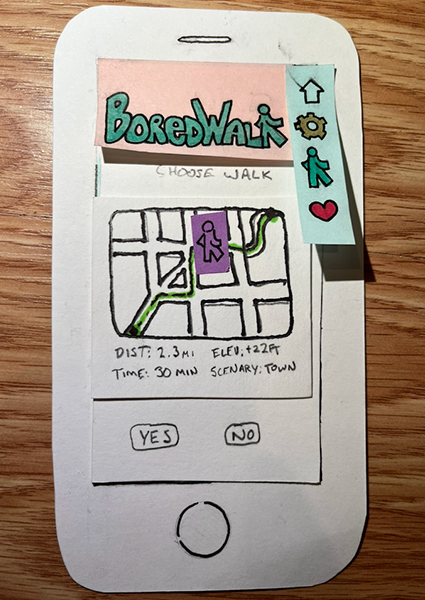 BoredWalk
CHOOSE WALK
DIST: 2.3 MI ELEV: +22FT
TIME: 30 MIN SCENARY: TOWN
YES NO